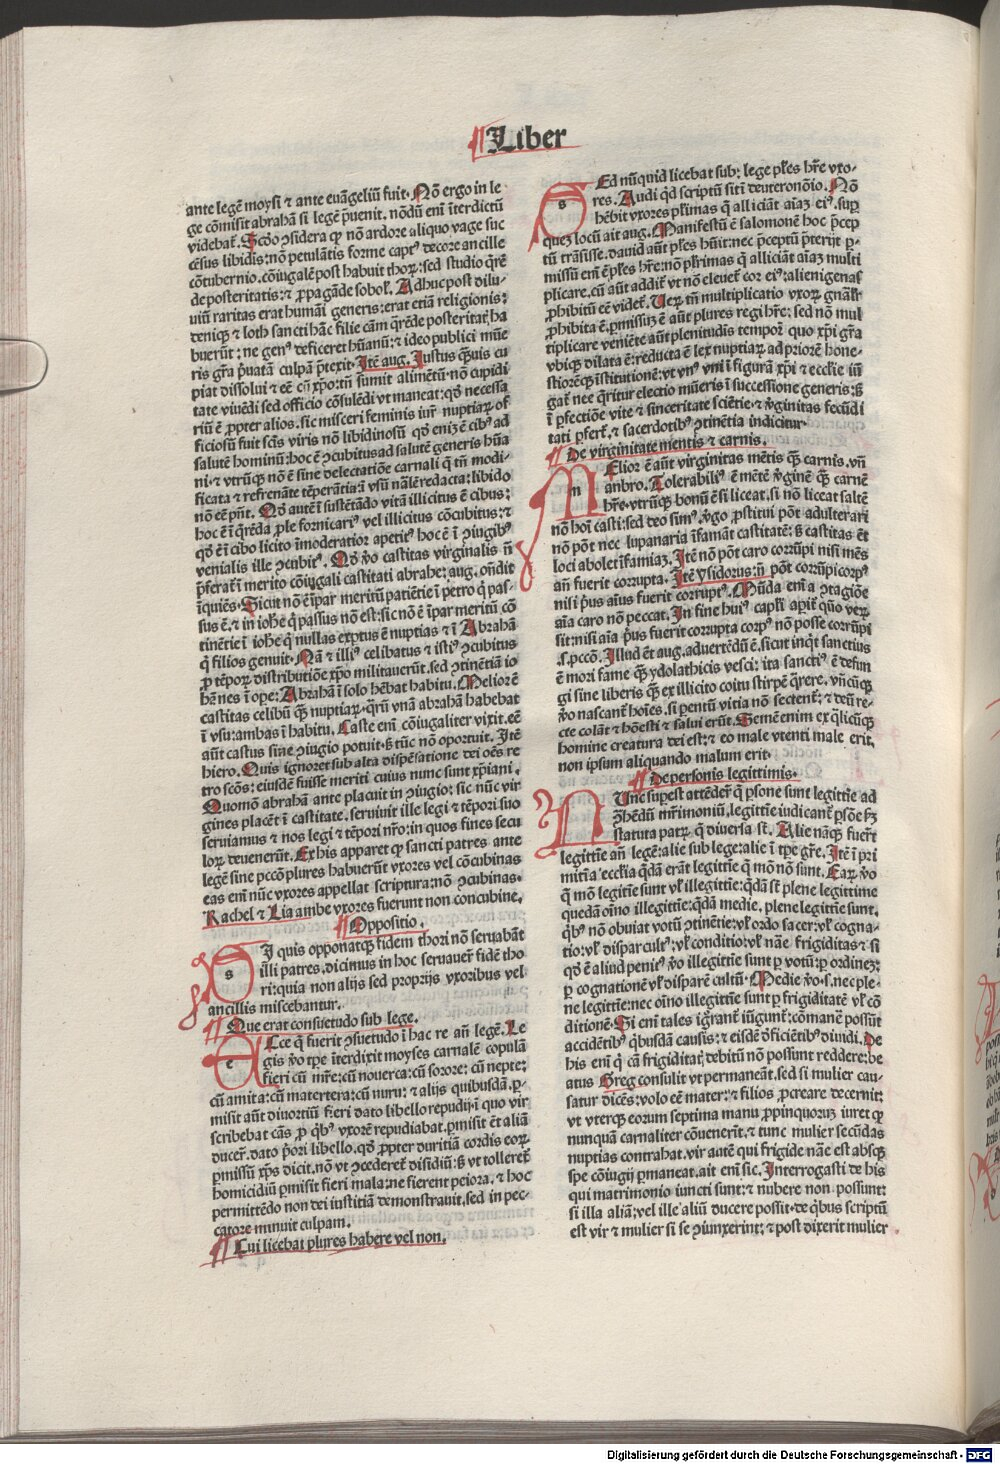 Liber
ante legē moysi ⁊ ante euāgeliū fuit. Nō ergo in le
ge cōmisit abrahā si legē p̄uenit. nōdū eni īterdictū
videbat᷑. Scd̄o ꝯsidera qꝫ nō ardore aliquo vage suc
cēsus libidis: nō petulātis forme captꝰ decore ancille
cōtubernio. cōiugalē post habuit thoꝝ: sed studio q̄rē
de posteritatis: ⁊ ꝓpagāde sobol᷑. Adhuc post dilu-
uiū raritas erat humāi generis: erat etiā religionis:
deniqꝫ ⁊ loth sancti hāc filie cām q̄rēde posteritat᷑ ha
buerūt: ne genꝰ deficeret hūanū: ⁊ ideo publici mūe
ris gr̄a p̄uatā culpā p̄texit. Itē aug. Iustus q̄uis cu
piat dissolui ⁊ eē cū xp̄o: tn̄ sumit alimētū. nō cupidi
tate viuēdi sed officio cōsulēdi vt maneat: qd̄ necessa
riū ē ꝓpter alios. sic misceri feminis iur̄ nuptiaꝝ of
ficiosū fuit scīs viris nō libidinosū qd̄ eniꝫ ē cibꝰ ad
salutē hominū: hoc ē ꝯcubitus ad salutē generis hūa
ni. ⁊ vtrūqꝫ nō ē sine delectatiōe carnali q̄ tn̄ modi-
ficata ⁊ refrenāte tēperātia ī vsū nālē redacta: libido
nō eē pn̄t. Qd̄ autē ī sustētādo vitā illicitus ē cibus:
hoc ē ī q̄rēda ꝓle fornicariꝰ vel illicitus cōcubitus: ⁊
qd̄ ē ī cibo licito īmoderatior apetitꝰ hoc ē ī ꝯiugibꝰ
venialis ille ꝯcubitꝰ. Qd̄ v̄o castitas virginalis n̄
p̄ferat᷑ ī merito cōiugali castitati abrahe: aug. ondit
iquiēs. Sicut nō ē īpar meritū patiētie ī petro q̄ pas-
sus ē. ⁊ in ioh̄e q̄ passus nō est: sic nō ē īpar meritū cō
tinētie ī ioh̄e q̄ nullas exptus ē nuptias ⁊ ī Abrahā
q̄ filios genuit. Nā ⁊ illiꝰ celibatus ⁊ istiꝰ ꝯcubitus
ꝓ tēpoꝝ distributiōe xp̄o militauerūt. sed ꝯtinētiā io
hēnes ī oꝑe: Abrahā ī solo hēbat habitu. Melior ē
castitas celibū q̄ꝫ nuptiaꝝ. q̄rū vnā abrahā habebat
ī vsu: ambas ī habitu. Caste eni cōiugaliter vixit. eē
aūt castus sine ꝯiugio potuit. s̄ tūc nō oportuit. Itē
hiero. Quis ignoret sub alta dispēsatione dei oēs re
tro scōs: eiusdē fuisse meriti cuius nunc sunt xp̄iani.
Quomō abrahā ante placuit in ꝯiugio: sic nūc vir
gines placēt ī castitate. seruiuit ille legi ⁊ tēpori suo
seruiamus ⁊ nos legi ⁊ tēpori nr̄o: in quos fines secu
loꝝ deuenerūt. Ex his apparet qꝫ sancti patres ante
legē sine pccō plures habuerūt vxores vel cōcubinas
eas eni nūc vxores appellat scriptura: nō ꝯcubinas.
Rachel ⁊ Lia ambe vxores fuerunt non concubine.
Oppositio.
SI quis opponat qꝫ fidem thori nō seruabāt
illi patres. dicimus in hoc seruauer̄t fidē tho
ri: quia non alijs sed proprijs vxoribus vel
ancillis miscebantur.
Que erat consuetudo sub lege.
ECce q̄ fuerit ꝯsuetudo ī hac re an̄ legē. Le
gis v̄o tꝑe īterdixit moyses carnalē copulā
fieri cū mr̄e: cū nouerca: cū sorore: cū nepte:
cū amita: cū matertera: cū nuru: ⁊ alijs quibusdā. ꝑ-
misit aūt diuortiū fieri dato libello repudij. ī quo vir
scribebat cās ꝓ qbꝰ vxorē repudiabat. ꝑmisit ēt aliā
ducer᷑. dato p̄ori libello. qd̄ ꝓpter duritiā cordis eoꝝ
ꝑmissū xp̄s dicit. nō vt ꝯcederet᷑ disidiū: s̄ vt tolleret᷑
homicidiū ꝑmisit fieri mala: ne fierent peiora. ⁊ hoc
permittēdo non dei iustitiā demonstrauit. sed in pec-
catore minuit culpam.
Cui licebat plures habere vel non.
SEd nūquid licebat sub: lege ples hr̄e vxo-
res. Audi qd̄ scriptū sit ī deuteronōio. Nō
hēbit vxores pl̄imas q̄ alliciāt aīaꝫ eiꝰ. suꝑ
quez locū ait aug. Manifestū ē salomonē hoc p̄cep
tū trāsisse. dauid aūt ples hūit: nec p̄ceptū p̄terijt. ꝑ-
missū eni ē ples hr̄e: nō pl̄imas q̄ alliciāt aīaꝫ multi
plicare. cū aūt addit᷑ vt nō eleuet᷑ cor eiꝰ: alienigenas
ꝓhibitū eē videt᷑. Ueꝝ tn̄ multiplicatio vxoꝝ gnāl᷑r
ꝓhibita ē. ꝑmissuꝫ ē aūt plures regi hr̄e: sed nō mul
tiplicare veniēte aūt plenitudis tempoꝝ quo xp̄i gr̄a
vbiqꝫ dilata ē: reducta ē lex nuptiaꝝ ad priorē hone-
stiorēqꝫ īstitutionē: vt vnꝰ vni ī figurā xp̄i ⁊ ecclie iū
gat᷑ nec q̄ritur electio mūeris ī successione generis: s̄
ī ꝑfectiōe vite ⁊ sinceritate sciētie. ⁊ v̄ginitas fecūdi
tati p̄fert᷑. ⁊ sacerdotibꝰ ꝯtinētia indicitur.
De virginitate mentis ⁊ carnis.
MElior ē aūt virginitas mētis q̄ꝫ carnis. vn̄
anbro. Tolerabiliꝰ ē mētē v̄ginē q̄ꝫ carnē
hr̄e. vtrūqꝫ bonū ē si liceat. si nō liceat saltē
nō hoi casti: sed deo simꝰ. v̄go ꝓstitui pōt adulterari
nō pōt nec lupanaria īfamāt castitatē: s̄ castitas ēt
loci abolet īfamiaꝫ. Itē nō pōt caro corrūpi nisi mēs
an̄ fuerit corrupta. Itē ysidorus: n̄ pōt corrūpi corpꝰ
nisi p̄us aīus fuerit corruptꝰ. Mūda eni a ꝯtagiōe
aīa caro nō peccat. In fine huiꝰ capl̄i aꝑit᷑ qūo veꝝ
sit: nisi aīa p̄us fuerit corrupta corpꝰ nō posse corrūpi
.s. pccō. Illud ēt aug. aduertēdū ē. sicut inqt sanctius
ē mori fame q̄ꝫ ydolathicis vesci: ita sanctiꝰ ē defun
gi sine liberis q̄ꝫ ex illicito coitu stirpē q̄rere. vn̄cūqꝫ
v̄o nascant᷑ hoīes. si pentū vitia nō sectent᷑: ⁊ deū re-
cte colāt ⁊ hōesti ⁊ salui erūt. Semē enim ex q̄licūqꝫ
homine creatura dei est: ⁊ eo male vtenti male erit.
non ipsum aliquando malum erit.
De personis legittimis.
NUnc suꝑest attēder᷑ q̄ ꝑsone sunt legittīe ad
ꝯhēdū mr̄imoniū. legittīe iudicant᷑ ꝑsōe scꝫ
statuta patrꝝ q̄ diuersa st̄. Alie nāqꝫ fuer̄t
legittīe an̄ legē: alie sub lege: alie ī tꝑe gr̄e. Itē ī pri
mitīa ecclīa qdā erāt legittīe q̄ mō nō sunt. Eaꝝ v̄o
q̄ mō legitīe sunt vl᷑ illegittīe: qdā st̄ plene legittime
quedā oīno illegittīe: qdā medie. plene legittīe sunt.
qbꝰ nō obuiat votū ꝯtinētie: vl᷑ ordo sacer: vl᷑ cogna-
tio: vl᷑ dispar cultꝰ: vl᷑ conditio: vl᷑ nāe frigiditas ⁊ si
qd̄ ē aliud penitꝰ v̄o illegittīe sunt ꝑ votū: ꝑ ordinez:
ꝑ cognationē vl᷑ disparē cultū. Medie v̄o .s. nec ple-
ne legittīe: nec oīno illegittīe sunt ꝑ frigiditatē vl᷑ cō
ditionē. Si eni tales ignrant᷑ iūgunt᷑: cōmanē possūt
accidētibꝰ qbusdā causis: ⁊ eisdē dficiētibꝰ diuidi. De
his eni q̄ cā frigiditat᷑ debitū nō possunt reddere: be
atus Greg consulit vt permaneāt. sed si mulier cau-
satur dicēs: volo eē mater: ⁊ filios ꝓcreare decernit:
vt vterqꝫ eorum septima manu ꝓpinquoruꝫ iuret qꝫ
nunquā carnaliter cōuenerūt. ⁊ tunc mulier secūdas
nuptias contrahat. vir autē qui frigide nāe est absqꝫ
spe cōiugij ꝑmaneat. ait eni sic. Interrogasti de his
qui matrimonio iuncti sunt: ⁊ nubere non possunt:
si illa aliū: vel ille aliū ducere possit. de qbus scriptū
est vir ⁊ mulier si se ꝯiunxerint: ⁊ post dixerit mulier
Digitalisierung gefördert durch die Deutsche Forschungsgemeinschaft - DFG